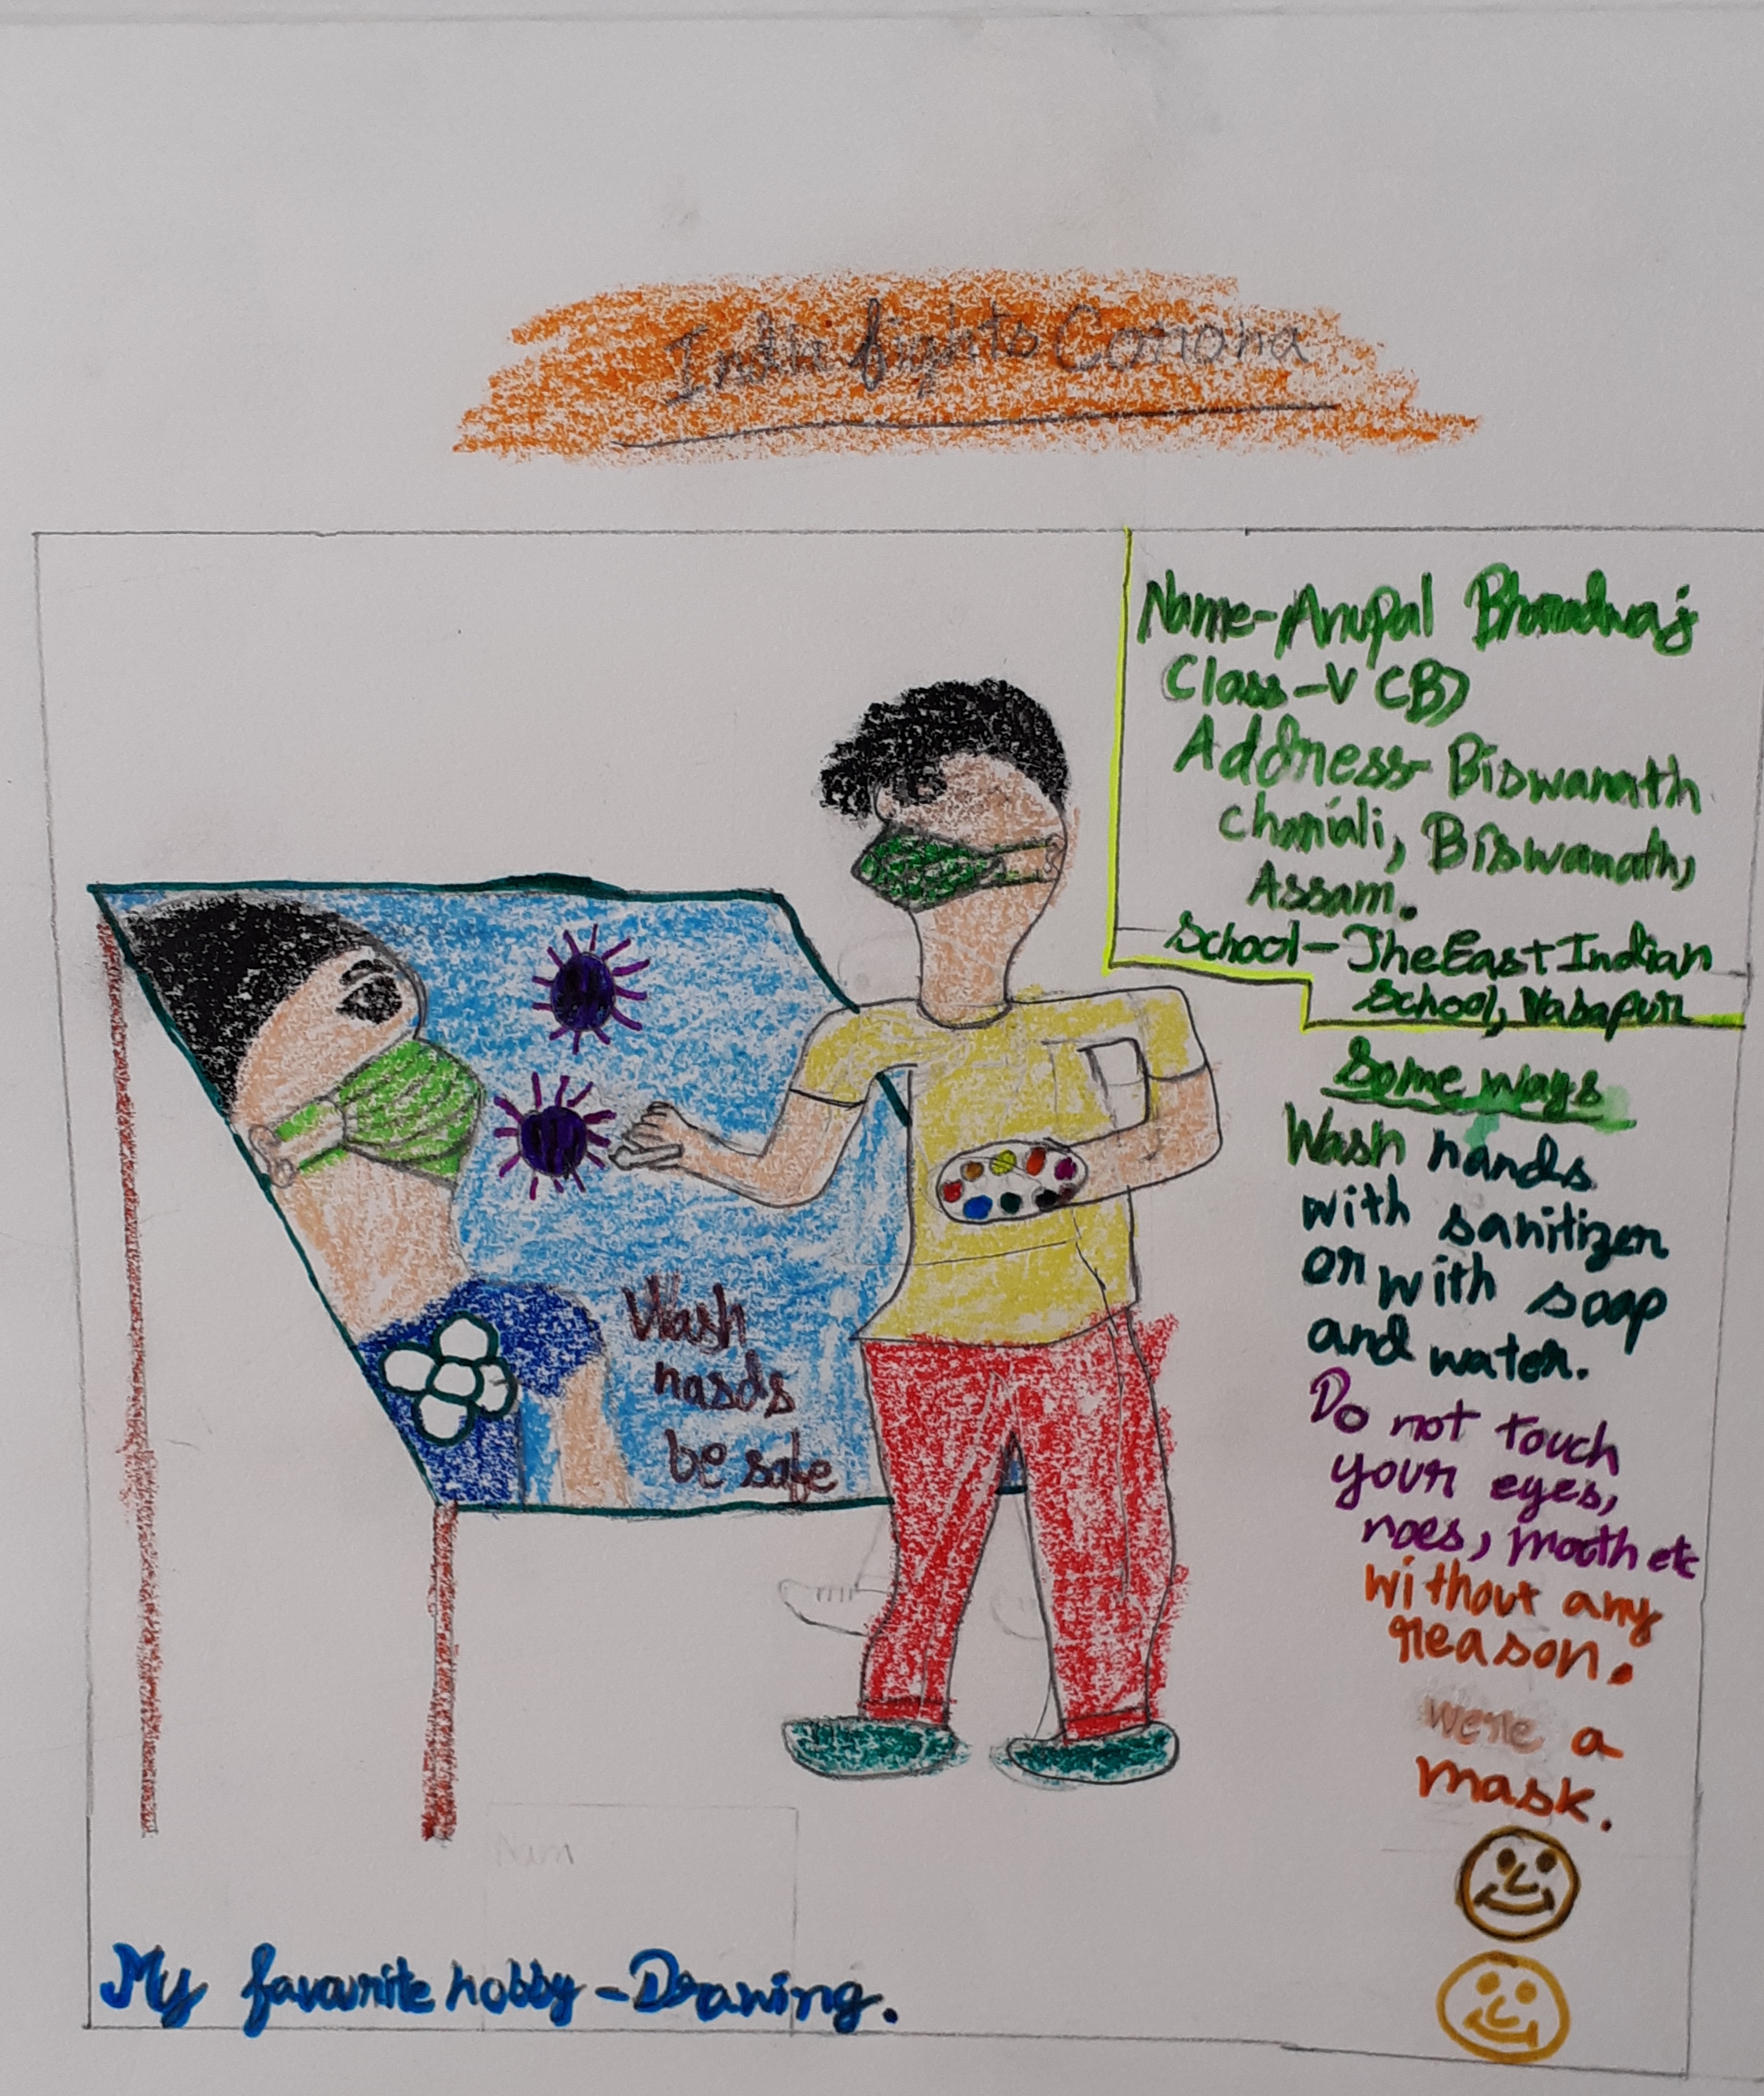 India fights Corona
Name-Anupal Bharadwaj
Class-V (B)
Address-Biswanath
chariali, Biswanath,
Assam.
School-The East Indian
School, Nabapur
Some ways
Wash hands
with sanitizer
or with soap
and water.
Do not touch
your eyes,
noes, mooth etc
without any
reason.
were a
mask.
Wash
hasds
be safe
Nam
My favourite hobby-Drawing.